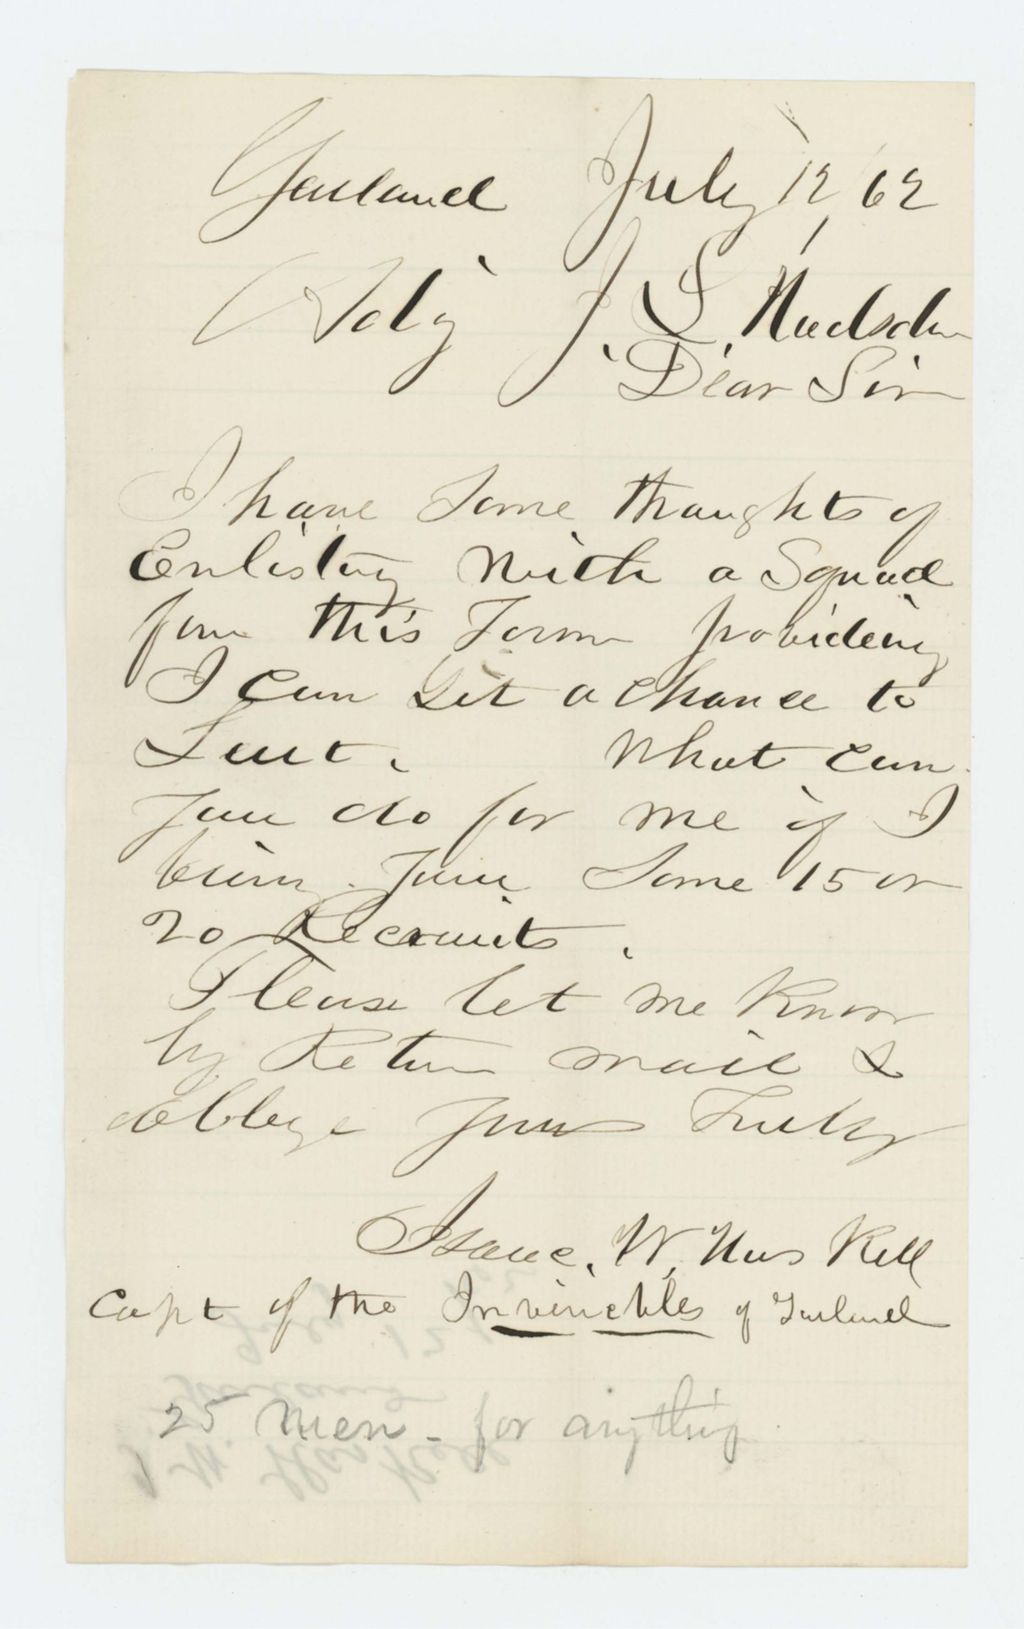 Garland July 12, / 62
Adj J. L. Hudsdon
Dear Sir
I have Some thoughts of
Enlisting With a Squad
from this Town provideing
I can Get a Chance to
Lieut. What can
you do for me if I
bring you Some 15 or
20 Recruits.
Please let me Know
by Return mail &
obblege Yours Truly
Isaac. W. Has Kell
Capt of the Invincibles of Garland
25 men - for anything